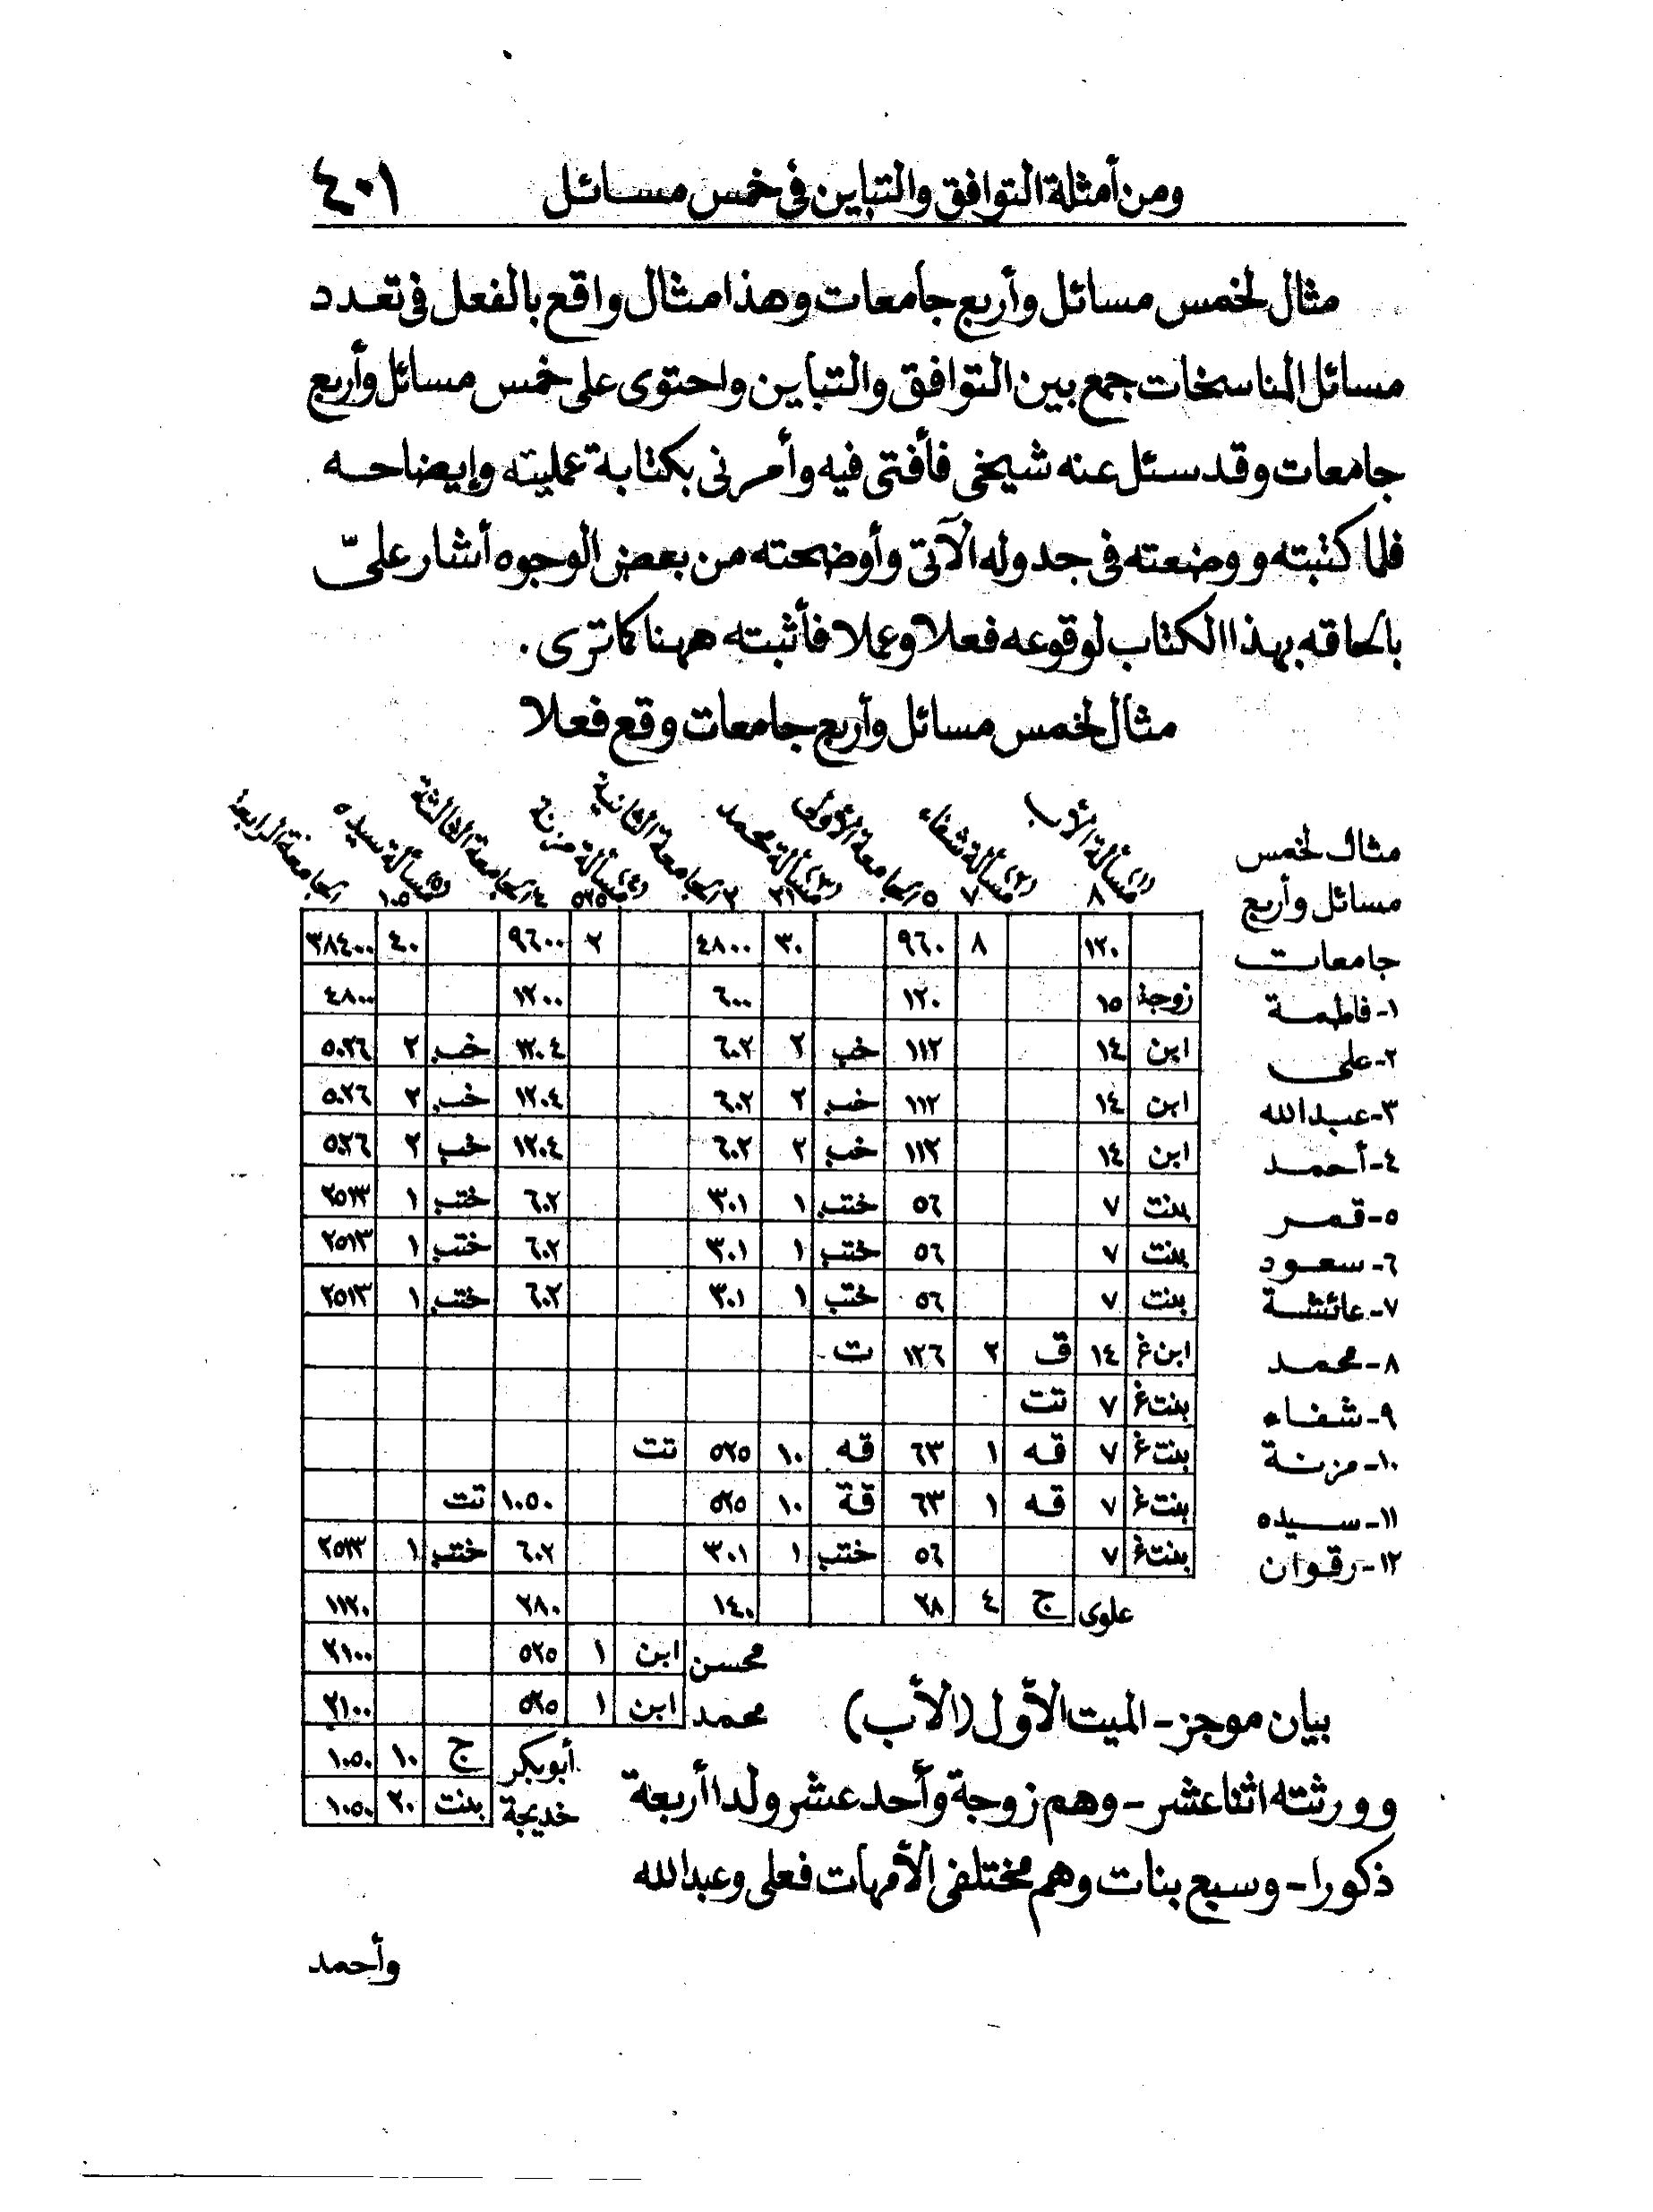 ومن أمثلة التوافق والتباين في خمس مسائل ٤٠١
مثال لخمس مسائل وأربع جامعات وهذا مثال واقع بالفعل في تعدد
مسائل المناسخات جمع بين التوافق والتباين واحتوى على خمس مسائل وأربع
جامعات وقد سئل عنه شيخي فأفتى فيه وأمرني بكتابة عمليته وإيضاحه
فلما كتبته ووضعته في جدوله الآتي وأوضحته من بعض الوجوه أشار عليّ
بالحاقه بهذا الكتاب لوقوعه فعلا وعملا فأثبته ههنا كما ترى .
مثال لخمس مسائل وأربع جامعات وقع فعلا
مثال لخمس
مسائل وأربع
جامعات
(١) مسألة الأب (٢) مسألة شفاء الجامعة الأولى (٣) مسألة محمد الجامعة الثانية (٤) مسألة مزنة الجامعة الثالثة (٥) مسألة سيده الجامعة الرابعة
٨ ٧ ٥ ٢١ ٢ ٥٢٥ ٤ ١٠٥
١٢٠ ٨ ٩٦٠ ٣٠ ٤٨٠٠ ٢ ٩٦٠٠ ٤٠ ٣٨٤٠٠
١- فاطمة زوجة ١٥ ١٢٠ ٦٠٠ ١٢٠٠ ٤٨٠٠
٢- على ابن ١٤ ١١٢ خب ٢ ٦٠٢ ١٢٠٤ خب ٢ ٥٠٢٦
٣- عبدالله ابن ١٤ ١١٢ خب ٢ ٦٠٢ ١٢٠٤ خب ٢ ٥٠٢٦
٤- أحمد ابن ١٤ ١١٢ خب ٢ ٦٠٢ ١٢٠٤ خب ٢ ٥٠٢٦
٥- قمر بنت ٧ ٥٦ ختب ١ ٣٠١ ٦٠٢ ختب ١ ٢٥١٣
٦- سعود بنت ٧ ٥٦ ختب ١ ٣٠١ ٦٠٢ ختب ١ ٢٥١٣
٧- عائشة بنت ٧ ٥٦ ختب ١ ٣٠١ ٦٠٢ ختب ١ ٢٥١٣
٨- محمد ابن غ ١٤ ق ٢ ١٢٦ ت
٩- شفاء بنت غ ٧ تت
١٠- مزنة بنت غ ٧ قه ١ ٦٣ قه ١٠ ٥٢٥ تت
١١- سيده بنت غ ٧ قه ١ ٦٣ قة ١٠ ٥٢٥ ١٠٥٠ تت
١٢- رقوان بنت غ ٧ ٥٦ ختب ١ ٣٠١ ٦٠٢ ختب ١ ٢٥١٣
علوى ج ٤ ٢٨ ١٤٠ ٢٨٠ ١١٢٠
محسن ابن ١ ٥٢٥ ٢١٠٠
محمد ابن ١ ٥٢٥ ٢١٠٠
أبوبكر ج ١٠ ١٠٥٠
خديجة بنت ٢٠ ١٠٥٠
بيان موجز - الميت الأول (الأب)
وورثته اثنا عشر - وهم زوجة وأحد عشر ولدا أربعة
ذكورا - وسبع بنات وهم مختلفى الأمهات فعلى وعبدالله
وأحمد